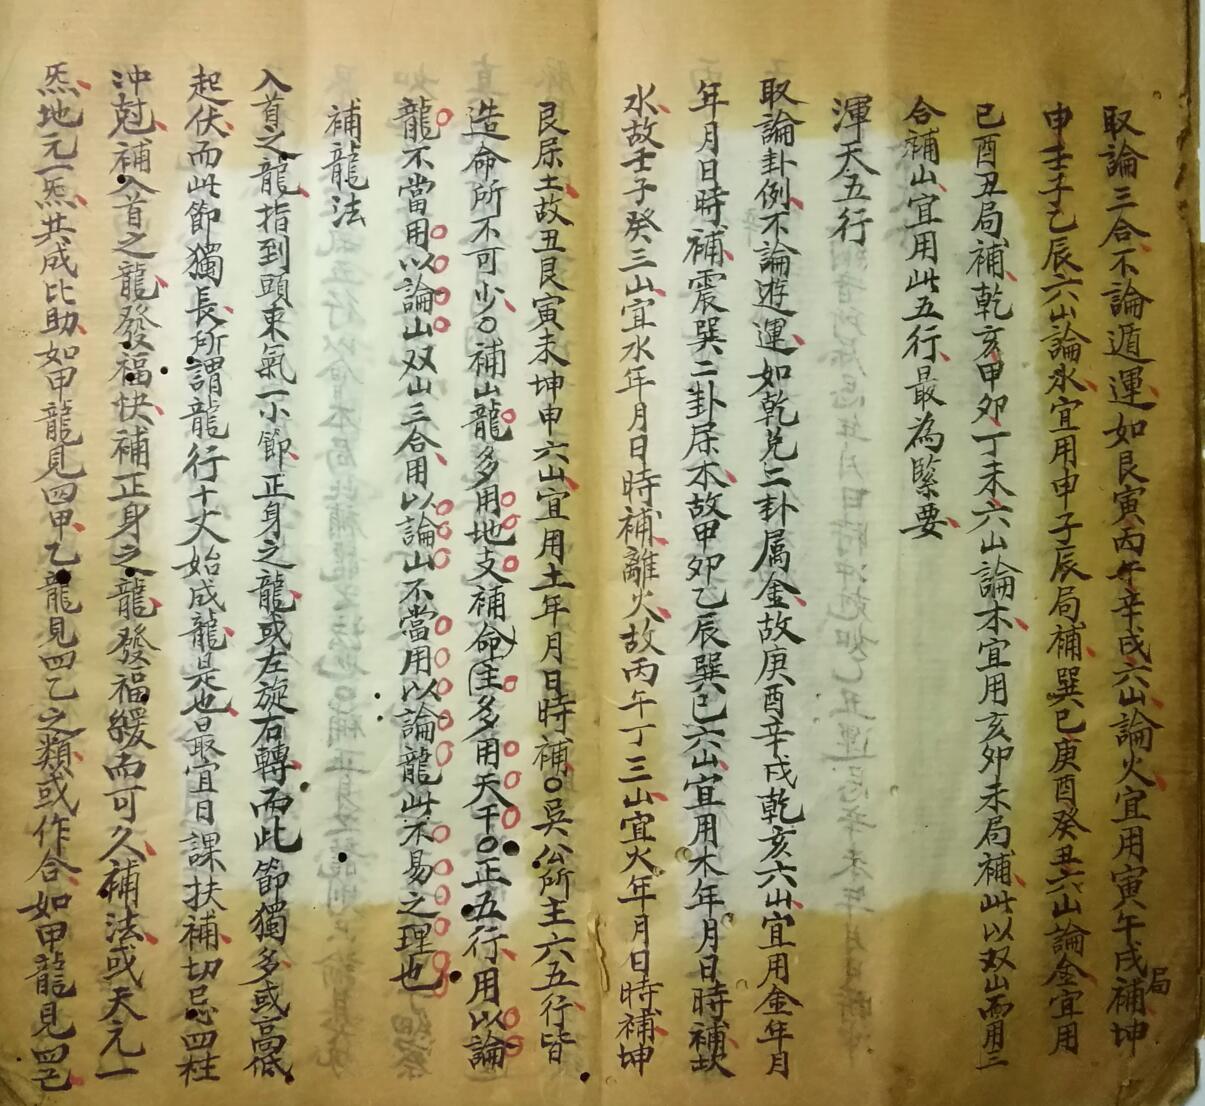 取論三合不論遁運如艮寅丙午辛戌六山論火宜用寅午戌局補坤
申壬子乙辰六山論水宜用申子辰局補巽巳庚酉癸丑六山論金宜用
巳酉丑局補乾亥甲卯丁未六山論木宜用亥卯未局補此以双山而用三
合補山宜用此五行最為緊要
渾天五行
取論卦例不論遊運如乾兌二卦属金故庚酉辛戌乾亥六山宜用金年月
年月日時補震巽二卦属木故甲卯乙辰巽巳六山宜用木年月日時補坎
水故壬子癸三山宜水年月日時補離火故丙午丁三山宜火年月日時補坤
艮属土故丑艮寅未坤申六山宜用土年月日時補○吳公所主六五行皆
造命所不可少○補山龍多用地支補命主多用天干○正五行用以論
龍不當用以論山双山三合用以論山不當用以論龍此不易之理也
補龍法
入首之龍指到頭束氣一小節正身之龍或左旋右轉而此節獨多或高低
起伏而此節獨長所謂龍行十丈始成龍是也最宜日課扶補切忌四柱
冲尅補入首之龍發福快補正身之龍發福緩而可久補法或天元一
炁地元一炁共成比助如甲龍見四甲乙龍見四乙之類或作合如甲龍見四己